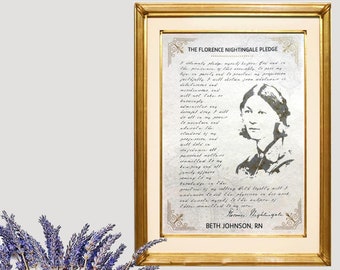 THE FLORENCE NIGHTINGALE PLEDGE
I solemnly pledge myself before God and in
the presence of this assembly, to pass my
life in purity and to practice my profession
faithfully. I will abstain from whatever is
deleterious and
mischievous, and
will not take or
knowingly
administer any
harmful drug. I will
do all in my power
to maintain and
elevate the
standard of my
profession, and
will hold in
confidence all
personal matters
committed to my
keeping and all
family affairs
coming to my
knowledge in the
practice of my calling. With loyalty will I
Florence Nightingale
BETH JOHNSON, RN